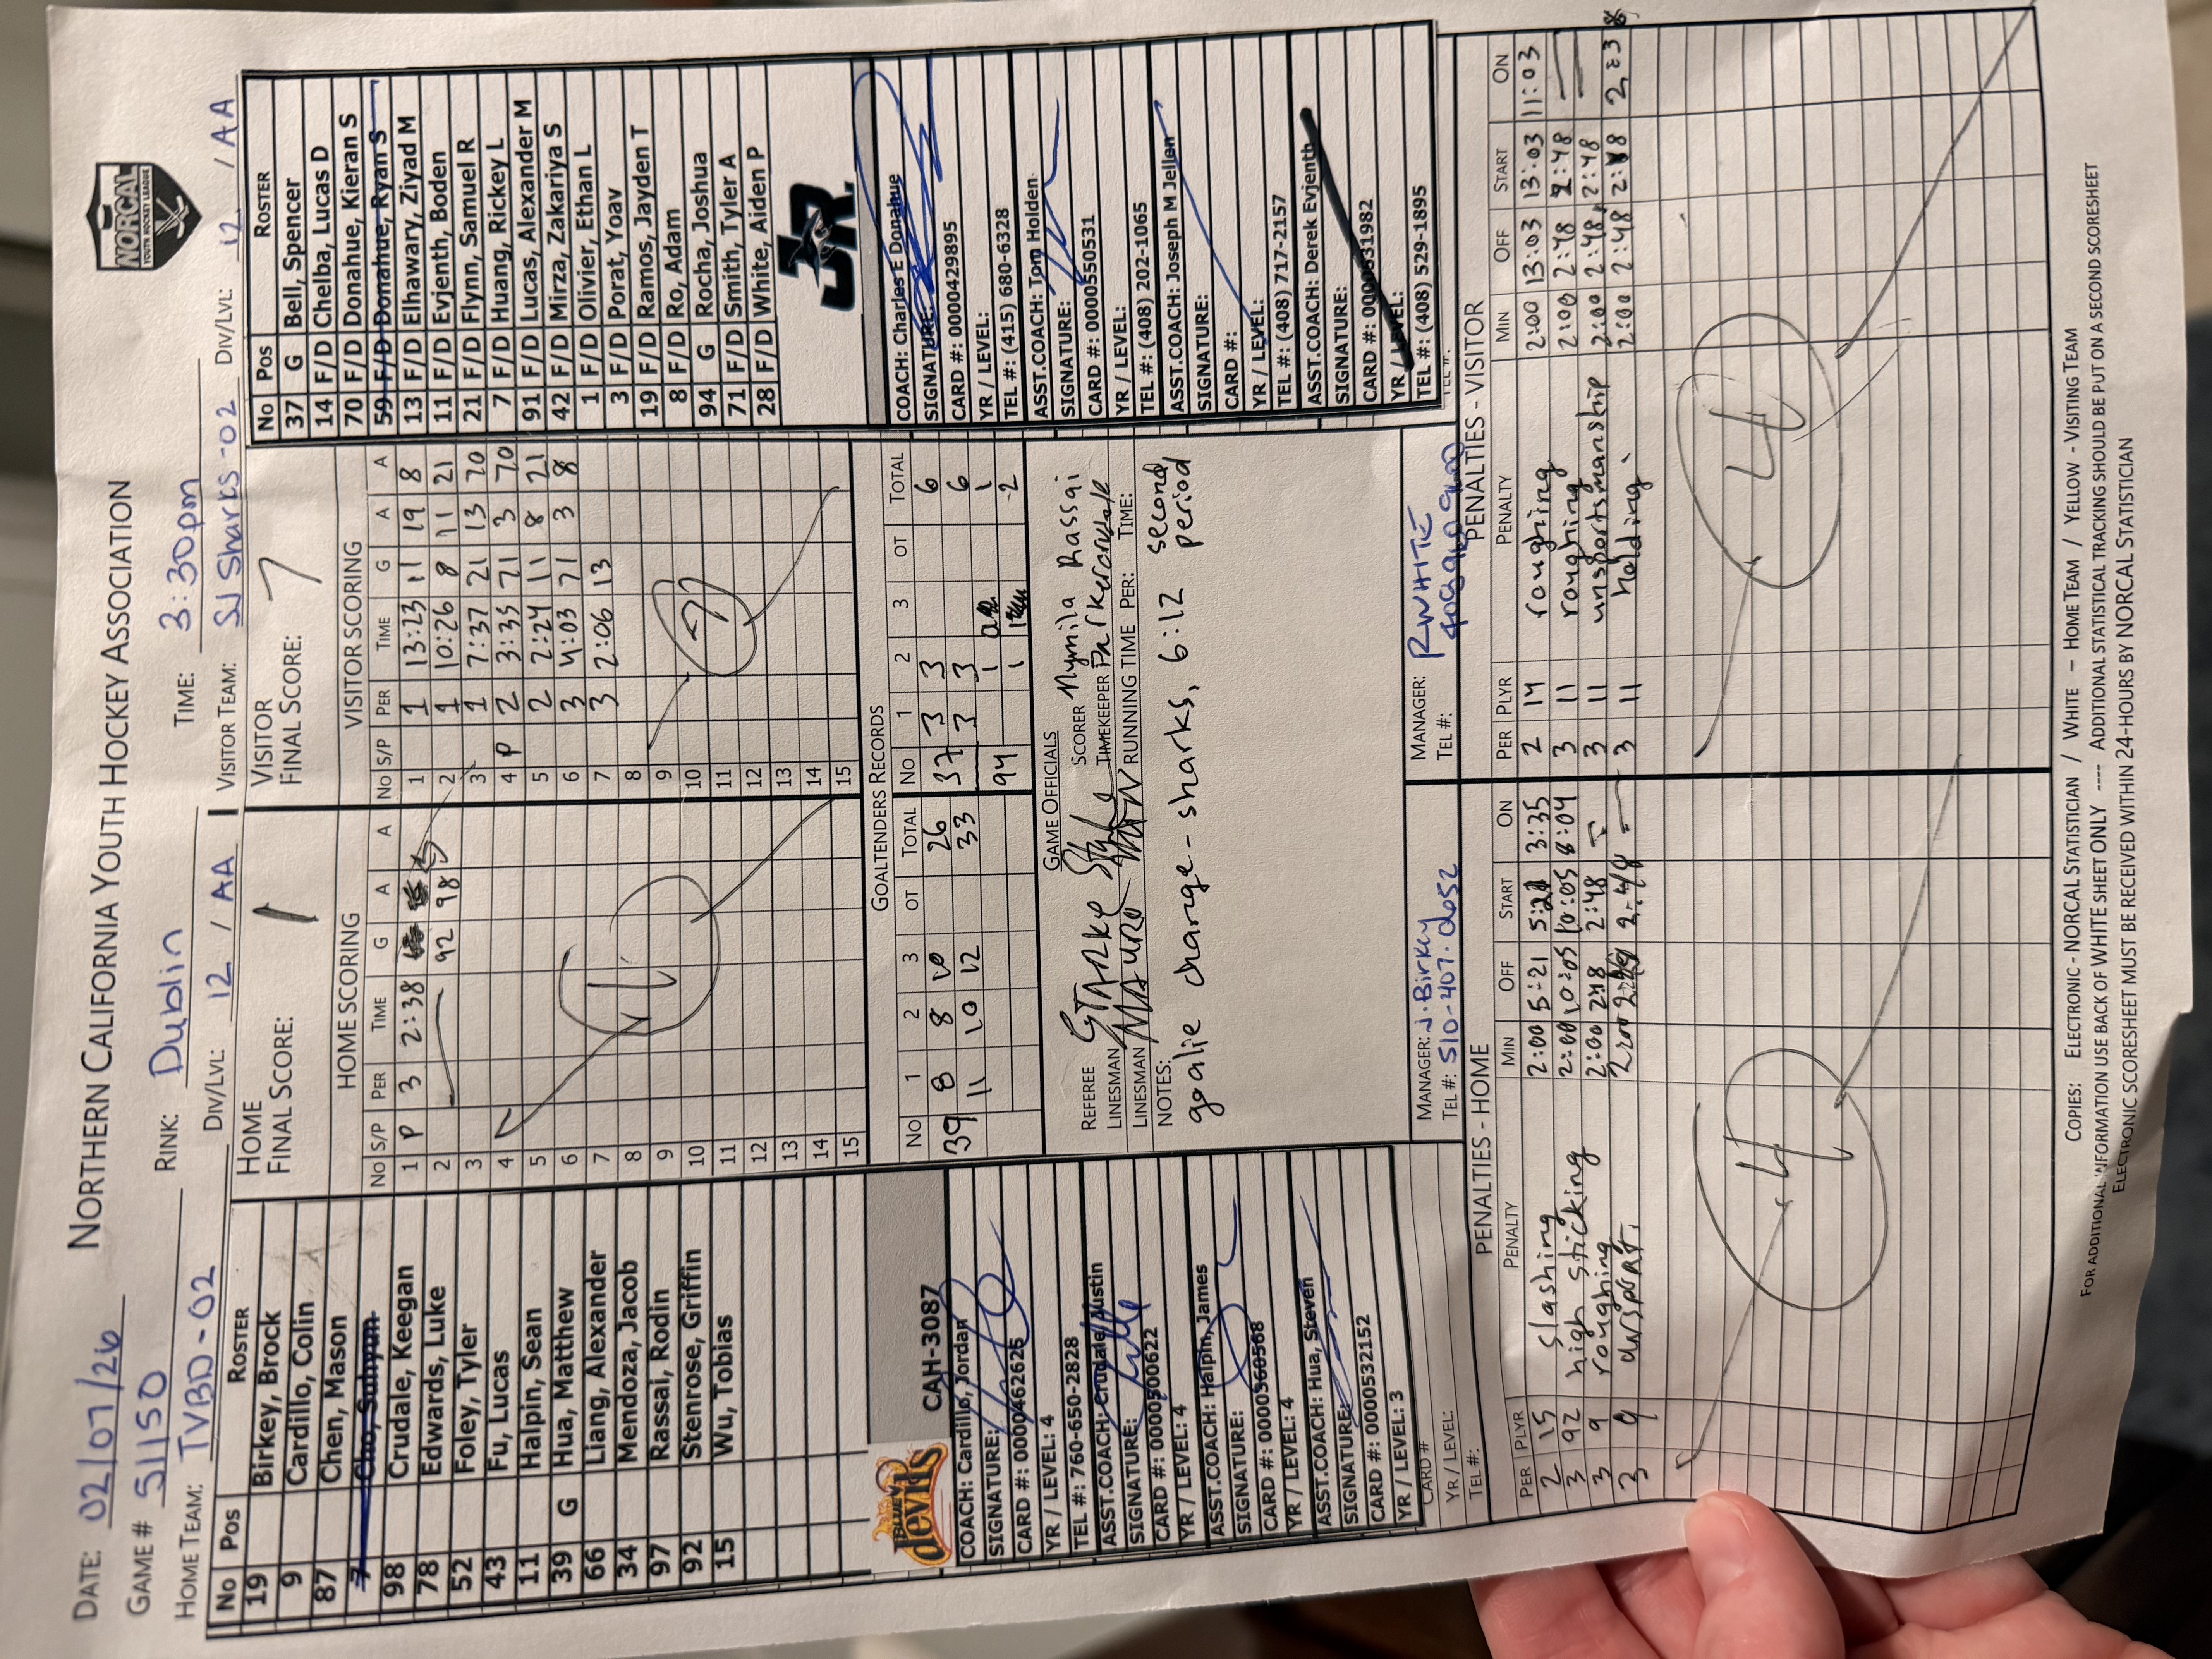 NORTHERN CALIFORNIA YOUTH HOCKEY ASSOCIATION
NORCAL
YOUTH HOCKEY LEAGUE
DATE: 02/07/26
GAME # 51150 RINK: Dublin TIME: 3:30pm
HOME TEAM: TVBD-02 DIV/LVL: 12 / AA VISITOR TEAM: SJ Sharks-02 DIV/LVL: 12 / AA
No Pos ROSTER
19 Birkey, Brock
9 Cardillo, Colin
87 Chen, Mason
7 Cho, Suhyun
98 Crudale, Keegan
78 Edwards, Luke
52 Foley, Tyler
43 Fu, Lucas
11 Halpin, Sean
39 G Hua, Matthew
66 Liang, Alexander
34 Mendoza, Jacob
97 Rassai, Rodin
92 Stenrose, Griffin
15 Wu, Tobias
BLUE devils
CAH-3087
COACH: Cardillo, Jordan
SIGNATURE:
CARD #: 0000462625
YR / LEVEL: 4
TEL #: 760-650-2828
ASST.COACH: Crudale, Austin
SIGNATURE:
CARD #: 0000500622
YR / LEVEL: 4
ASST.COACH: Halpin, James
SIGNATURE:
CARD #: 0000360568
YR / LEVEL: 4
ASST.COACH: Hua, Steven
SIGNATURE:
CARD #: 0000532152
YR / LEVEL: 3
CARD #
YR / LEVEL:
TEL #:
HOME
FINAL SCORE: 1
HOME SCORING
No S/P PER TIME G A A
1 P 3 2:38
2 92 98
3
4
5
6
7
8
9
10
11
12
13
14
15
1
VISITOR
FINAL SCORE: 7
VISITOR SCORING
No S/P PER TIME G A A
1 1 13:23 11 19 8
2 1 10:26 8 11 21
3 1 7:37 21 13 70
4 P 2 3:35 71 3 70
5 2 2:24 11 8 21
6 3 4:03 71 3 8
7 3 2:06 13
8
9
10
11
12
13
14
15
7
GOALTENDERS RECORDS
No 1 2 3 OT TOTAL No 1 2 3 OT TOTAL
39 8 8 10 26 37 3 3 6
11 10 12 33 3 3 6
94 1 1
1 2
GAME OFFICIALS
REFEREE STARKE SCORER Nymila Rassai
LINESMAN MAURO TIMEKEEPER
LINESMAN RUNNING TIME PER: TIME:
NOTES:
goalie change - sharks, 6:12 second period
MANAGER: J. Birkey
TEL #: 510-407-0052
MANAGER: R WHITE
TEL #:
No Pos ROSTER
37 G Bell, Spencer
14 F/D Chelba, Lucas D
70 F/D Donahue, Kieran S
59 F/D Donahue, Ryan S
13 F/D Elhawary, Ziyad M
11 F/D Evjenth, Boden
21 F/D Flynn, Samuel R
7 F/D Huang, Rickey L
91 F/D Lucas, Alexander M
42 F/D Mirza, Zakariya S
1 F/D Olivier, Ethan L
3 F/D Porat, Yoav
19 F/D Ramos, Jayden T
8 F/D Ro, Adam
94 G Rocha, Joshua
71 F/D Smith, Tyler A
28 F/D White, Aiden P
JR.
COACH: Charles E Donahue
SIGNATURE:
CARD #: 0000429895
YR / LEVEL:
TEL #: (415) 680-6328
ASST.COACH: Tom Holden
SIGNATURE:
CARD #: 0000550531
YR / LEVEL:
TEL #: (408) 202-1065
ASST.COACH: Joseph M Jellen
SIGNATURE:
CARD #:
YR / LEVEL:
TEL #: (408) 717-2157
ASST.COACH: Derek Evjenth
SIGNATURE:
CARD #: 0000631982
YR / LEVEL:
TEL #: (408) 529-1895
TEL #:
PENALTIES - HOME
PER PLYR PENALTY MIN OFF START ON
2 15 slashing 2:00 5:21 5:21 3:35
3 92 high sticking 2:00 10:05 10:05 8:04
3 9 roughing 2:00 2:48 2:48
3 9 unsport. 2:00 2:48
4
PENALTIES - VISITOR
PER PLYR PENALTY MIN OFF START ON
2 14 roughing 2:00 13:03 13:03 11:03
3 11 roughing 2:00 2:48 2:48
3 11 unsportsmanship 2:00 2:48 2:48
3 11 holding 2:00 2:48
4
COPIES: ELECTRONIC - NORCAL STATISTICIAN / WHITE - HOME TEAM / YELLOW - VISITING TEAM
FOR ADDITIONAL INFORMATION USE BACK OF WHITE SHEET ONLY ---- ADDITIONAL STATISTICAL TRACKING SHOULD BE PUT ON A SECOND SCORESHEET
ELECTRONIC SCORESHEET MUST BE RECEIVED WITHIN 24-HOURS BY NORCAL STATISTICIAN